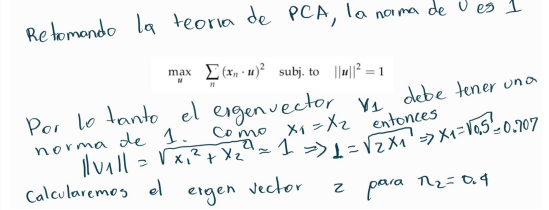 Retomando la teoria de PCA, la norma de U es 1
max_u ∑_n (x_n · u)² subj. to ||u||² = 1
Por lo tanto el eigenvector V1 debe tener una
norma de 1. Como x1 = x2 entonces
||V1|| = √(x1² + x2²) = 1 ⇒ 1 = √2x1² ⇒ x1 = √0,5 = 0.707
Calcularemos el eigen vector 2 para n2 = 0.4